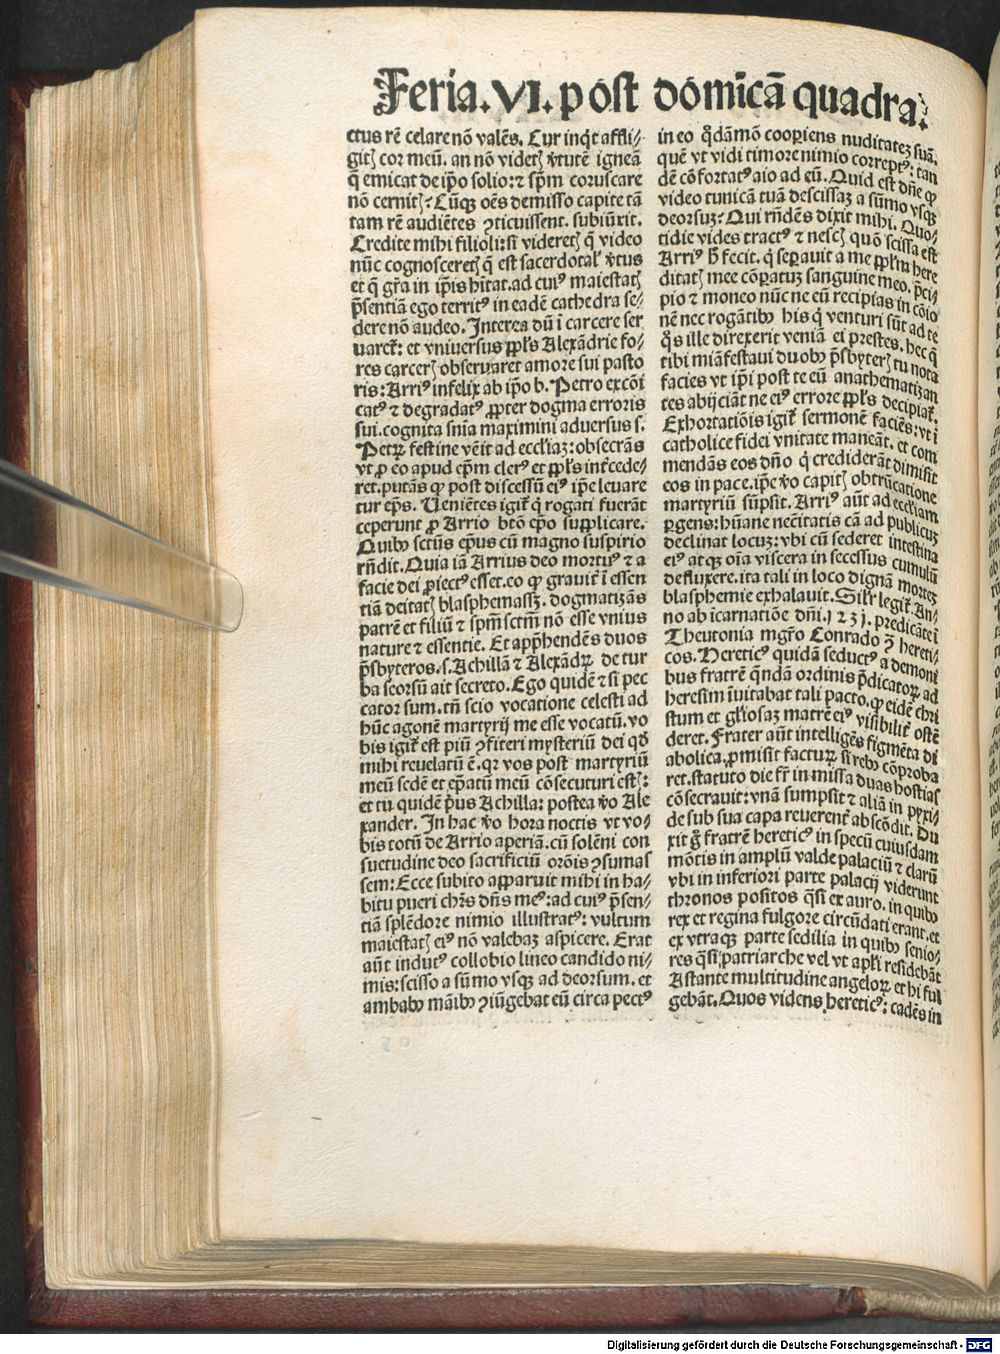 Feria.VI.post dómicā quadra.
ctus rē celare nō valēs. Cur inqͥt affli⸗
gitꝭ cor meū. an nō videtꝭ v̓tutē igneā
q̄ emicat de ip̄o solio: ⁊ sp̄m coruscare
nō cernitꝭ? Cūqꝫ oēs demisso capite tā
tam rē audiētes ꝯticuissent. subiūxit.
Credite mihi filioli: si videretꝭ q̄ video
nūc cognosceretꝭ q̄ est sacerdotal̓ v̓tus
et q̄ gr̄a in ip̄is hītat. ad cuiꝰ maiestatꝭ
p̄sentiā ego territꝰ in eadē cathedra se⸗
dere nō audeo. Interea dū ī carcere ser
uaret᷑: et vniuersus ppl̓s Alexādrie fo⸗
res carcerꝭ obseruaret amore sui pasto
ris: Arriꝰ infelix ab ip̄o b. Petro excōi
catꝰ ⁊ degradatꝰ ꝓpter dogma erroris
sui. cognita sn̄ia maximini aduersus s.
Petrꝝ festine vēit ad eccl̓iaꝫ: obsecrās
vt ꝓ eo apud ep̄m clerꝰ et ppl̓s int̓cede⸗
ret. putās ꝙ post discessū eiꝰ ip̄e leuare
tur ep̄s. Ueniētes igit᷑ q̄ rogati fuerāt
ceperunt ꝓ Arrio btō ep̄o supplicare.
Quibꝰ sctūs ep̄us cū magno suspirio
rn̄dit. Quia iā Arrius deo mortuꝰ ⁊ a
facie dei ꝓiectꝰ esset. eo ꝙ grauit̓ ī essen
tiā deitatꝭ blasphemasꝫ. dogmatizās
patrē et filiū ⁊ sp̄m sctm̄ nō esse vnius
nature ⁊ essentie. Et app̄hendēs duos
p̄sbyteros. s. Achillā ⁊ Alexādrꝝ de tur
ba seorsū ait secreto. Ego quidē ⁊ si pec
cator sum. tn̄ scio vocatione celesti ad
hūc agonē martyrij me esse vocatū. vo
bis igit᷑ est piū ꝯfiteri mysteriū dei qd̄
mihi reuelatū ē. qꝛ vos post martyriū
meū sedē et ep̄atū meū cōsecuturi estꝭ:
et tu quidē p̓us Achilla: postea v̓o Ale
xander. In hac v̓o hora noctis vt vo⸗
bis totū de Arrio aperiā. cū solēni con
suetudine deo sacrificiū orōis ꝯsumas
sem: Ecce subito apparuit mihi in ha⸗
bitu pueri chr̄s dn̄s meꝰ: ad cuiꝰ p̄sen⸗
tiā splēdore nimio illustratꝰ: vultum
maiestatꝭ eiꝰ nō valebaꝫ aspicere. Erat
aūt indutꝰ collobio lineo candido ni⸗
mis: scisso a sūmo vsqꝫ ad deorsum. et
ambabꝰ māibꝰ ꝯiūgebat eū circa pectꝰ
in eo qd̄āmō cooꝑiens nuditateꝫ suā.
quē vt vidi timore nimio correptꝰ: tan
dē cōfortatꝰ aio ad eū. Quid est dn̄e ꝙ
video tunicā tuā descissaꝫ a sūmo vsqꝫ
deorsuꝫ? Qui rn̄dēs dixit mihi. Quo⸗
tidie vides tractꝰ ⁊ nescꝭ quō scissa est
Arriꝰ h̄ fecit. q̄ seꝑauit a me ppl̓m here
ditatꝭ mee cōꝑatuꝫ sanguine meo. p̄ci⸗
pio ⁊ moneo nūc ne eū recipias in cōio
nē nec rogātibꝰ his q̄ venturi sūt ad te
qͦs ille direxerit veniā ei prestes. hec q̄
tibi māfestaui duobꝰ p̄sbyterꝭ tu nota
facies vt ip̄i post te eū anathematizan
tes abijciāt ne eiꝰ errore ppl̓s decipiat᷑.
Exhortatiōis igit᷑ sermonē faciēs: vt ī
catholice fidei vnitate maneāt. et com
mendās eos dn̄o q̄ crediderāt dimisit
eos in pace. ip̄e v̓o capitꝭ obtrūcatione
martyriū sūpsit. Arriꝰ aūt ad eccl̓iam
ꝑgens: hūane necītatis cā ad publicuꝫ
declinat locuꝫ: vbi cū sederet intestina
eiꝰ atqꝫ oīa viscera in secessus cumulū
defluxere. ita tali in loco dignā morteꝫ
blasphemie exhalauit. Silr̄ legit᷑. An⸗
no ab īcarnatiōe dn̄i. 1231. predicāte ī
Theutonia mgr̄o Conrado ꝯ̄ hereti⸗
cos. Hereticꝰ quidā seductꝰ a demoni
bus fratrē qūdā ordinis p̄dicatorꝝ ad
heresim īuitabat tali pacto. ꝙ eidē chri
stum et gl̓iosaꝫ matrē eiꝰ visibilit̓ ostē
deret. Frater aūt intelligēs figmēta di
abolica. ꝓmisit facturꝝ si rebꝰ cōproba
ret. statuto die fr̄ in missa duas hostias
cōsecrauit: vnā sumpsit ⁊ aliā in pyxi⸗
de sub sua capa reuerent̓ abscōdit. Du
xit g̓ fratrē hereticꝰ in specū cuiusdam
mōtis in amplū valde palaciū ⁊ clarū
vbi in inferiori parte palacij viderunt
thronos positos qͣsi ex auro. in quibꝰ
rex et regina fulgore circūdati erant. et
ex vtraqꝫ parte sedilia in quibꝰ senio⸗
res qͣsi patriarche vel vt apl̓i residebāt
Astante multitudine angelorꝝ et hi ful
gebāt. Quos videns hereticꝰ: cadēs in
Digitalisierung gefördert durch die Deutsche Forschungsgemeinschaft - DFG